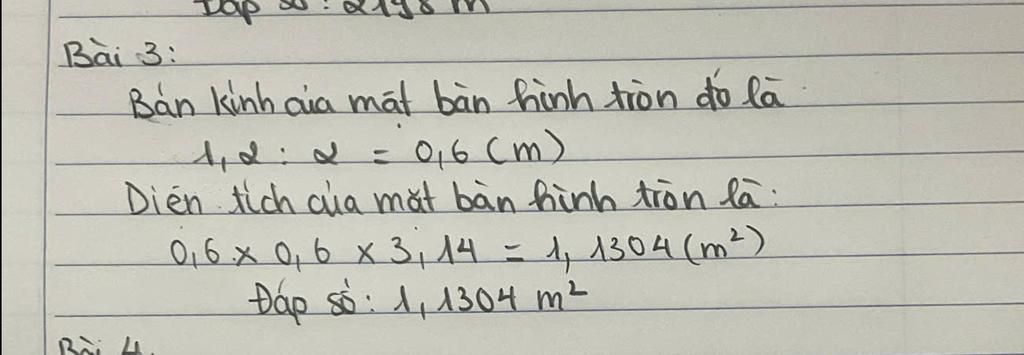 Đáp số: 2198 m
Bài 3:
Bán kính của mặt bàn hình tròn đó là
1,2 : 2 = 0,6 (m)
Diện tích của mặt bàn hình tròn là:
0,6 x 0,6 x 3,14 = 1,1304 (m²)
Đáp số: 1,1304 m²
Bài 4